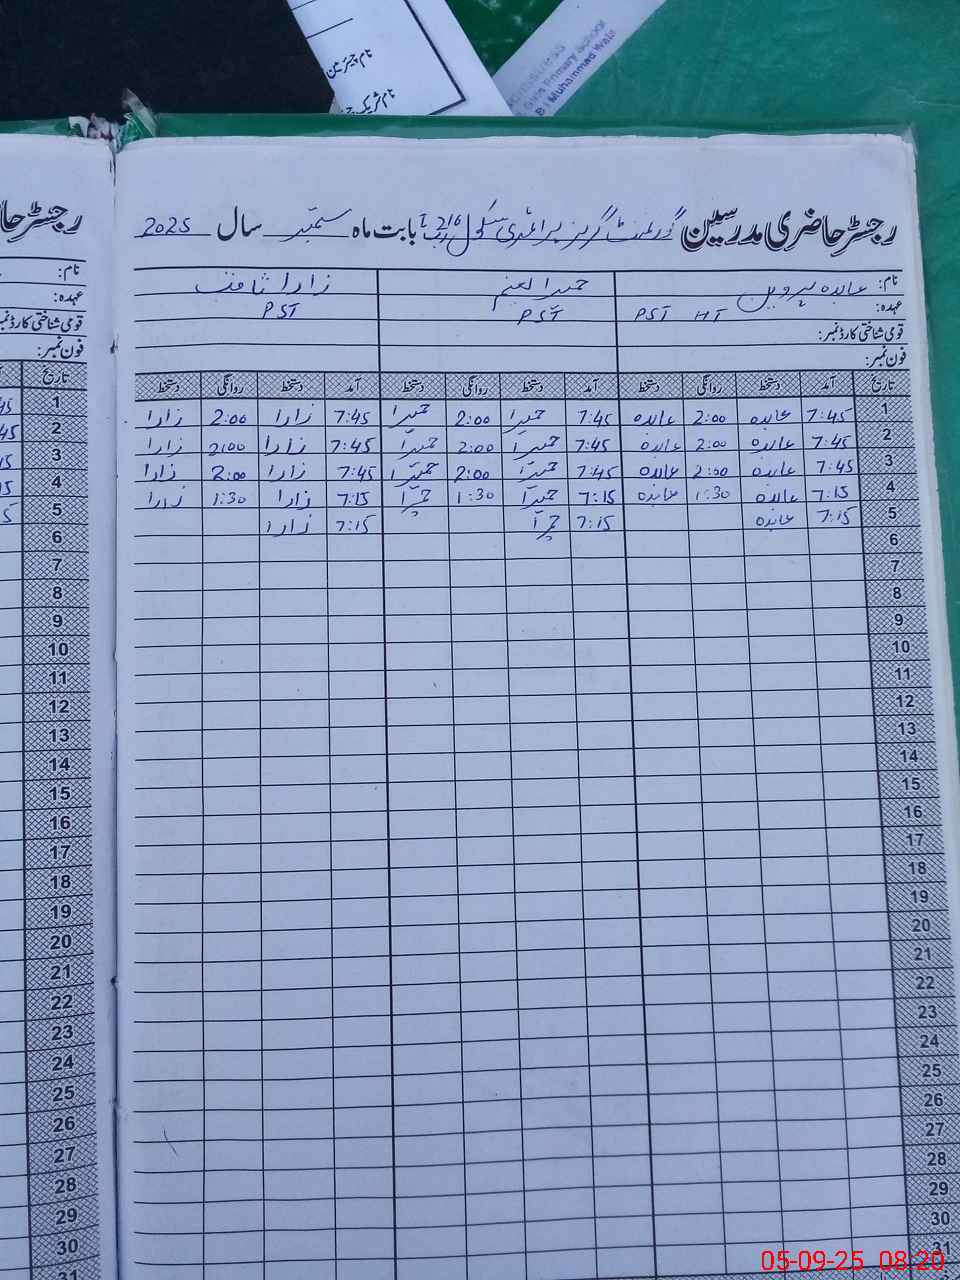 نام چیئرمین
Girls Primary School
B I Muhammad Wala
رجسٹر حاضری مدرسین گورنمنٹ گرلز پرائمری سکول 216 رب بابت ماہ ستمبر سال 2025
نام: عابدہ پروین حمیرا زارا
عہدہ: PST HT PST PST
قومی شناختی کارڈ نمبر:
فون نمبر:
تاریخ آمد دستخط روانگی دستخط آمد دستخط روانگی دستخط آمد دستخط روانگی دستخط
1 7:45 عابدہ 2:00 عابدہ 7:45 حمیرا 2:00 حمیرا 7:45 زارا 2:00 زارا
2 7:45 عابدہ 2:00 عابدہ 7:45 حمیرا 2:00 حمیرا 7:45 زارا 2:00 زارا
3 7:45 عابدہ 2:00 عابدہ 7:45 حمیرا 2:00 حمیرا 7:45 زارا 2:00 زارا
4 7:15 عابدہ 1:30 عابدہ 7:15 حمیرا 1:30 حمیرا 7:15 زارا 1:30 زارا
5 7:15 عابدہ 7:15 حمیرا 7:15 زارا
6
7
8
9
10
11
12
13
14
15
16
17
18
19
20
21
22
23
24
25
26
27
28
29
30
31
رجسٹر حا
نام:
عہدہ:
قومی شناختی کارڈ نمبر
فون نمبر:
تاریخ
1
2
3
4
5
6
7
8
9
10
11
12
13
14
15
16
17
18
19
20
21
22
23
24
25
26
27
28
29
30
31
05-09-25 08:20